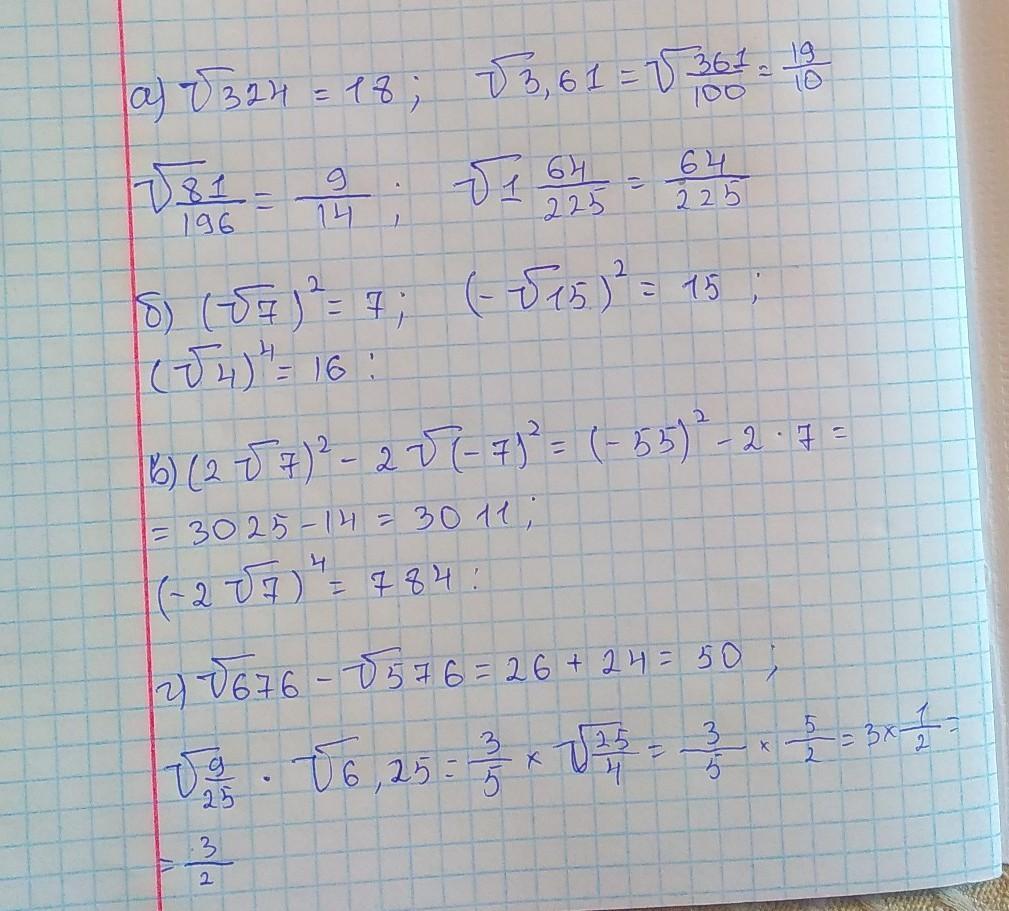 а) √324 = 18; √3,61 = √361/100 = 19/10
√81/196 = 9/14; √1 64/225 = 64/225
б) (√7)² = 7; (-√15)² = 15;
(√4)⁴ = 16:
в) (2√7)² - 2√(-7)² = (-55)² - 2 · 7 =
= 3025 - 14 = 3011;
(-2√7)⁴ = 784:
г) √676 - √576 = 26 + 24 = 50;
√9/25 · √6,25 = 3/5 × √25/4 = 3/5 × 5/2 = 3 × 1/2 =
= 3/2